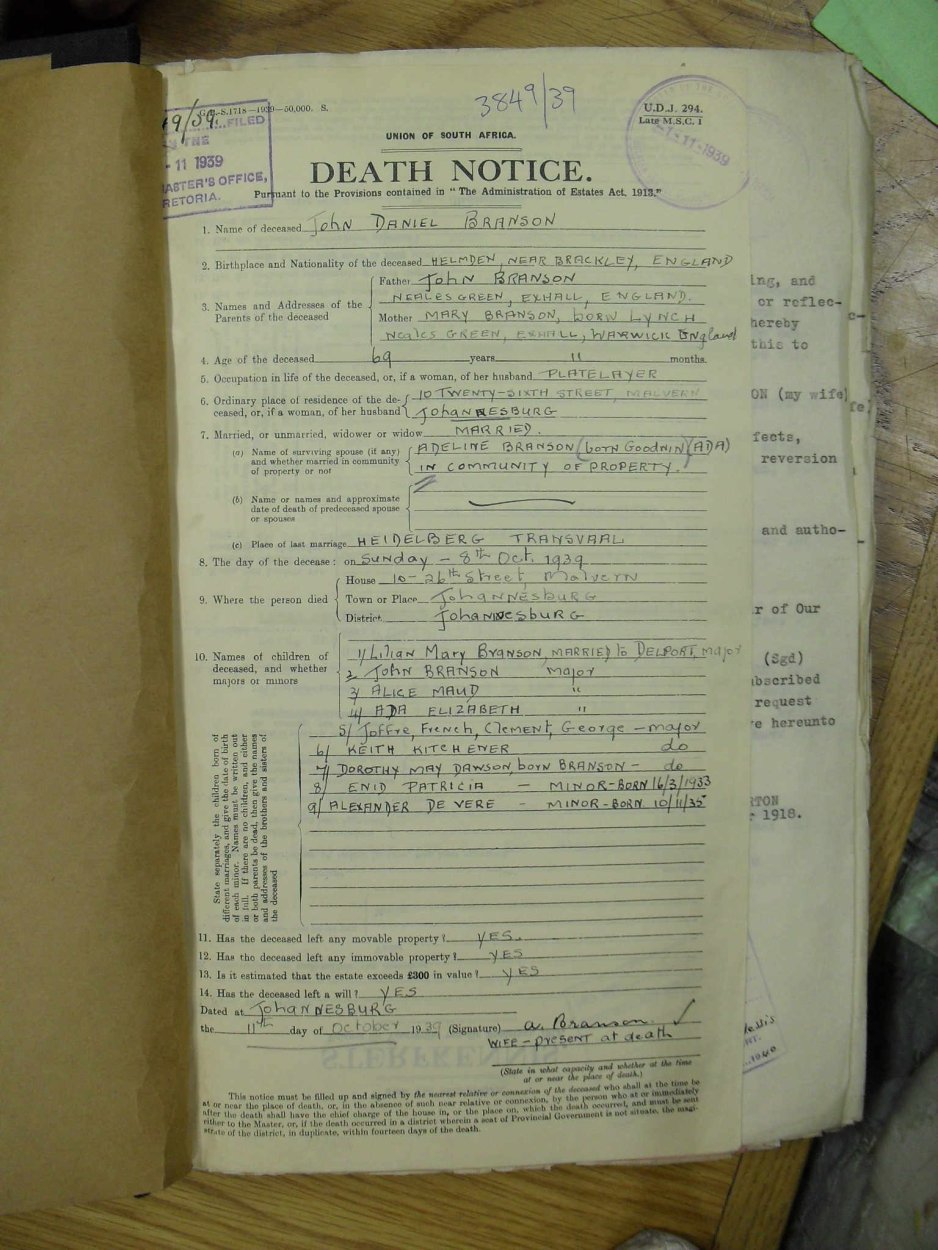 G.P.-S.1718—1939—50,000. S.
3849/39
U.D.J. 294.
Late M.S.C. 1
49/39
FILED
IN THE
-11 1939
MASTER'S OFFICE,
PRETORIA.
-11-1939
UNION OF SOUTH AFRICA.
DEATH NOTICE.
Pursuant to the Provisions contained in "The Administration of Estates Act, 1913."
1. Name of deceased John DANIEL BRANSON
2. Birthplace and Nationality of the deceased HELMDEN, NEAR BRACKLEY, ENGLAND
3. Names and Addresses of the Parents of the deceased
Father John BRANSON
NEALES GREEN, EXHALL, ENGLAND.
Mother MARY BRANSON, born LYNCH
Neales GREEN, EXHALL, WARWICK England
4. Age of the deceased 69 years 11 months.
5. Occupation in life of the deceased, or, if a woman, of her husband PLATELAYER
6. Ordinary place of residence of the deceased, or, if a woman, of her husband
10 TWENTY-SIXTH STREET, MALVERN
JOHANNESBURG
7. Married, or unmarried, widower or widow MARRIED.
(a) Name of surviving spouse (if any) and whether married in community of property or not
ADELINE BRANSON (born GOODNIN) (ADA)
IN COMMUNITY OF PROPERTY.
(b) Name or names and approximate date of death of predeceased spouse or spouses
(c) Place of last marriage HEIDELBERG TRANSVAAL
8. The day of the decease: on SUNDAY - 8th Oct. 1939
9. Where the person died
House 10-26th Street, Malvern
Town or Place JOHANNESBURG
District JOHANNESBURG
10. Names of children of deceased, and whether majors or minors
1/ Lilian Mary Branson, MARRIED to DELPORT, major
2/ John BRANSON major
3/ ALICE MAUD "
4/ ADA ELIZABETH "
5/ Joffre, French, Clement, George - major
6/ KEITH KITCHENER do
7/ DOROTHY MAY DAWSON, born BRANSON - do
8/ ENID PATRICIA - MINOR-BORN 16/3/1933
9/ ALEXANDER DE VERE - MINOR-BORN 10/11/35
State separately the children born of
different marriages, and give the date of birth
of each minor. Names must be written out
in full. If there are no children, and either
or both parents be dead, then give the names
and addresses of the brothers and sisters of
the deceased
11. Has the deceased left any movable property? YES.
12. Has the deceased left any immovable property? YES
13. Is it estimated that the estate exceeds £300 in value? YES
14. Has the deceased left a will? YES
Dated at JOHANNESBURG
the 11th day of October 1939 (Signature) A. Branson.
WIFE - present at death
(State in what capacity and whether at the time
at or near the place of death.)
This notice must be filled up and signed by the nearest relative or connexion of the deceased who shall at the time be
at or near the place of death, or, in the absence of such near relative or connexion, by the person who at or immediately
after the death shall have the chief charge of the house in, or the place on, which the death occurred, and must be sent
either to the Master, or, if the death occurred in a district wherein a seat of Provincial Government is not situate, the magi-
strate of the district, in duplicate, within fourteen days of the death.
ing, and
or reflec-
hereby
this to
ON (my wife)
fects,
reversion
and autho-
r of Our
(Sgd)
bscribed
request
e hereunto
RTON
1918.